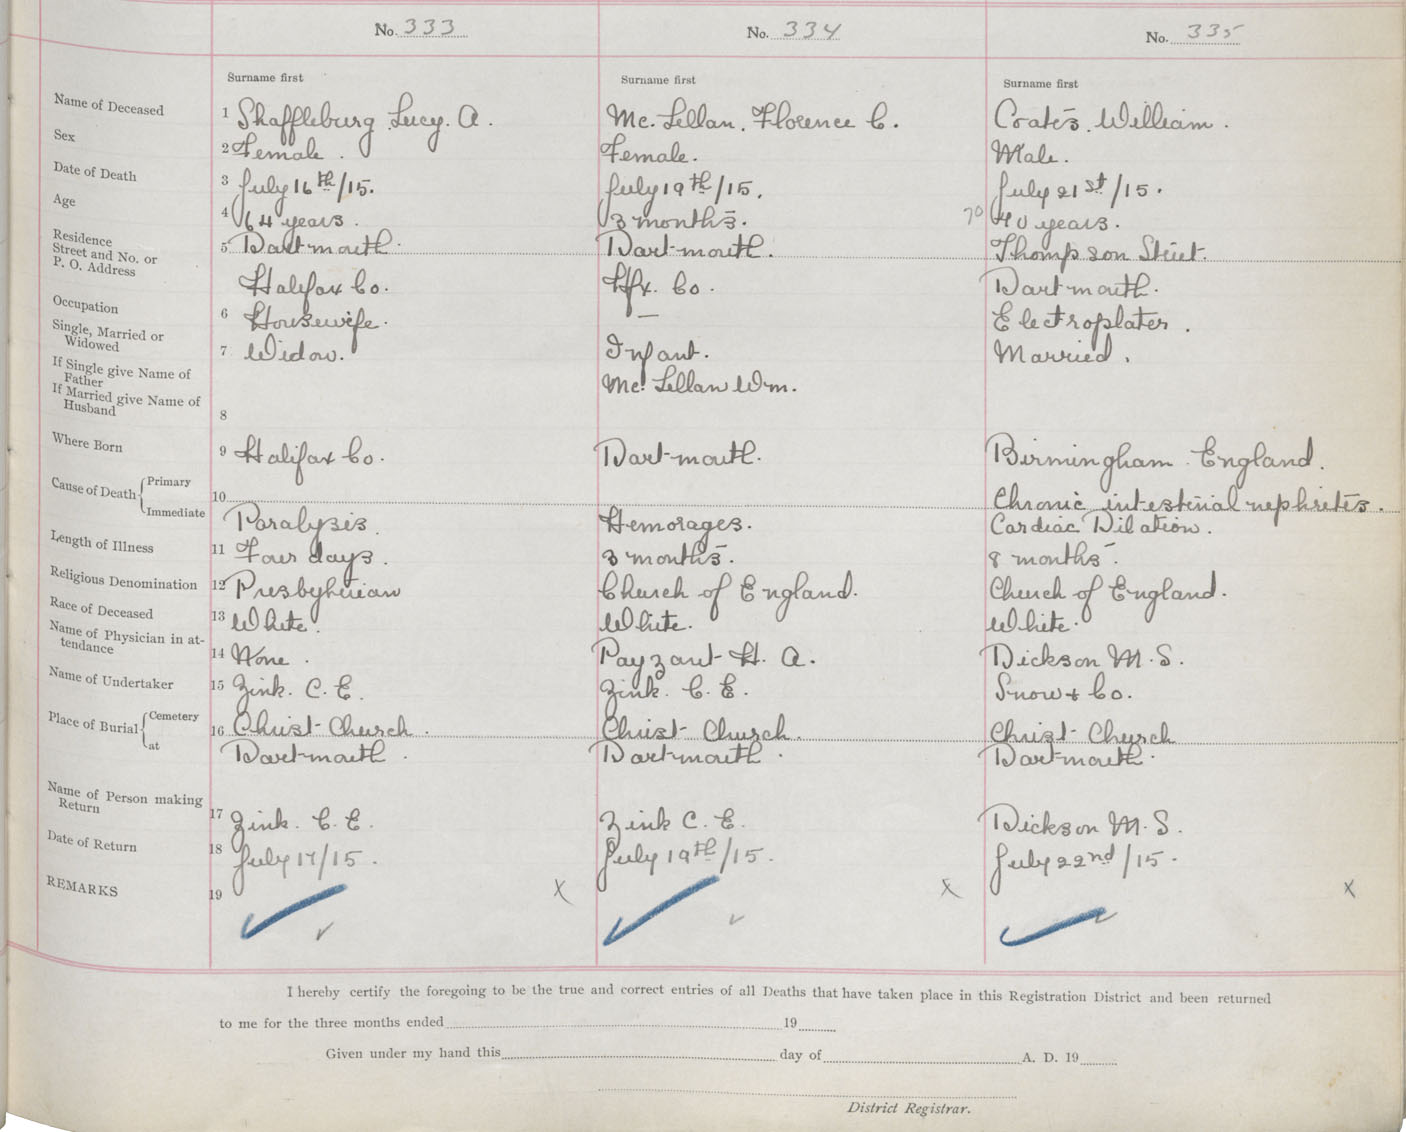 No. 333 No. 334 No. 335
Surname first Surname first Surname first
Name of Deceased 1 Shaffleburg Lucy. A. Mc. Lellan, Florence C. Coates, William.
Sex 2 Female. Female. Male.
Date of Death 3 July 16th/15. July 19th/15. July 21st/15.
Age 4 64 years. 3 months. 70 40 years.
Residence
Street and No. or 5 Dartmouth. Dartmouth. Thompson Street.
P. O. Address Halifax Co. Hfx. Co. Dartmouth.
Occupation 6 Housewife. — Electroplater.
Single, Married or
Widowed 7 Widow. Infant. Married.
If Single give Name of
Father Mc. Lellan Wm.
If Married give Name of
Husband 8
Where Born 9 Halifax Co. Dartmouth. Birmingham England.
Cause of Death Primary 10 Chronic intestinal nephrites.
Immediate Paralysis. Hemorages. Cardiac Dilation.
Length of Illness 11 Four days. 3 months. 8 months.
Religious Denomination 12 Presbyterian Church of England. Church of England.
Race of Deceased 13 White. White. White.
Name of Physician in at-
tendance 14 None. Payzant H. A. Dickson M. S.
Name of Undertaker 15 Zink. C. E. Zink. C. E. Snow & Co.
Place of Burial Cemetery 16 Christ Church. Christ Church. Christ Church
at Dartmouth. Dartmouth. Dartmouth.
Name of Person making
Return 17 Zink. C. E. Zink C. E. Dickson M. S.
Date of Return 18 July 17/15. July 19th/15. July 22nd/15.
REMARKS 19 x x x
I hereby certify the foregoing to be the true and correct entries of all Deaths that have taken place in this Registration District and been returned
to me for the three months ended 19
Given under my hand this day of A. D. 19
District Registrar.